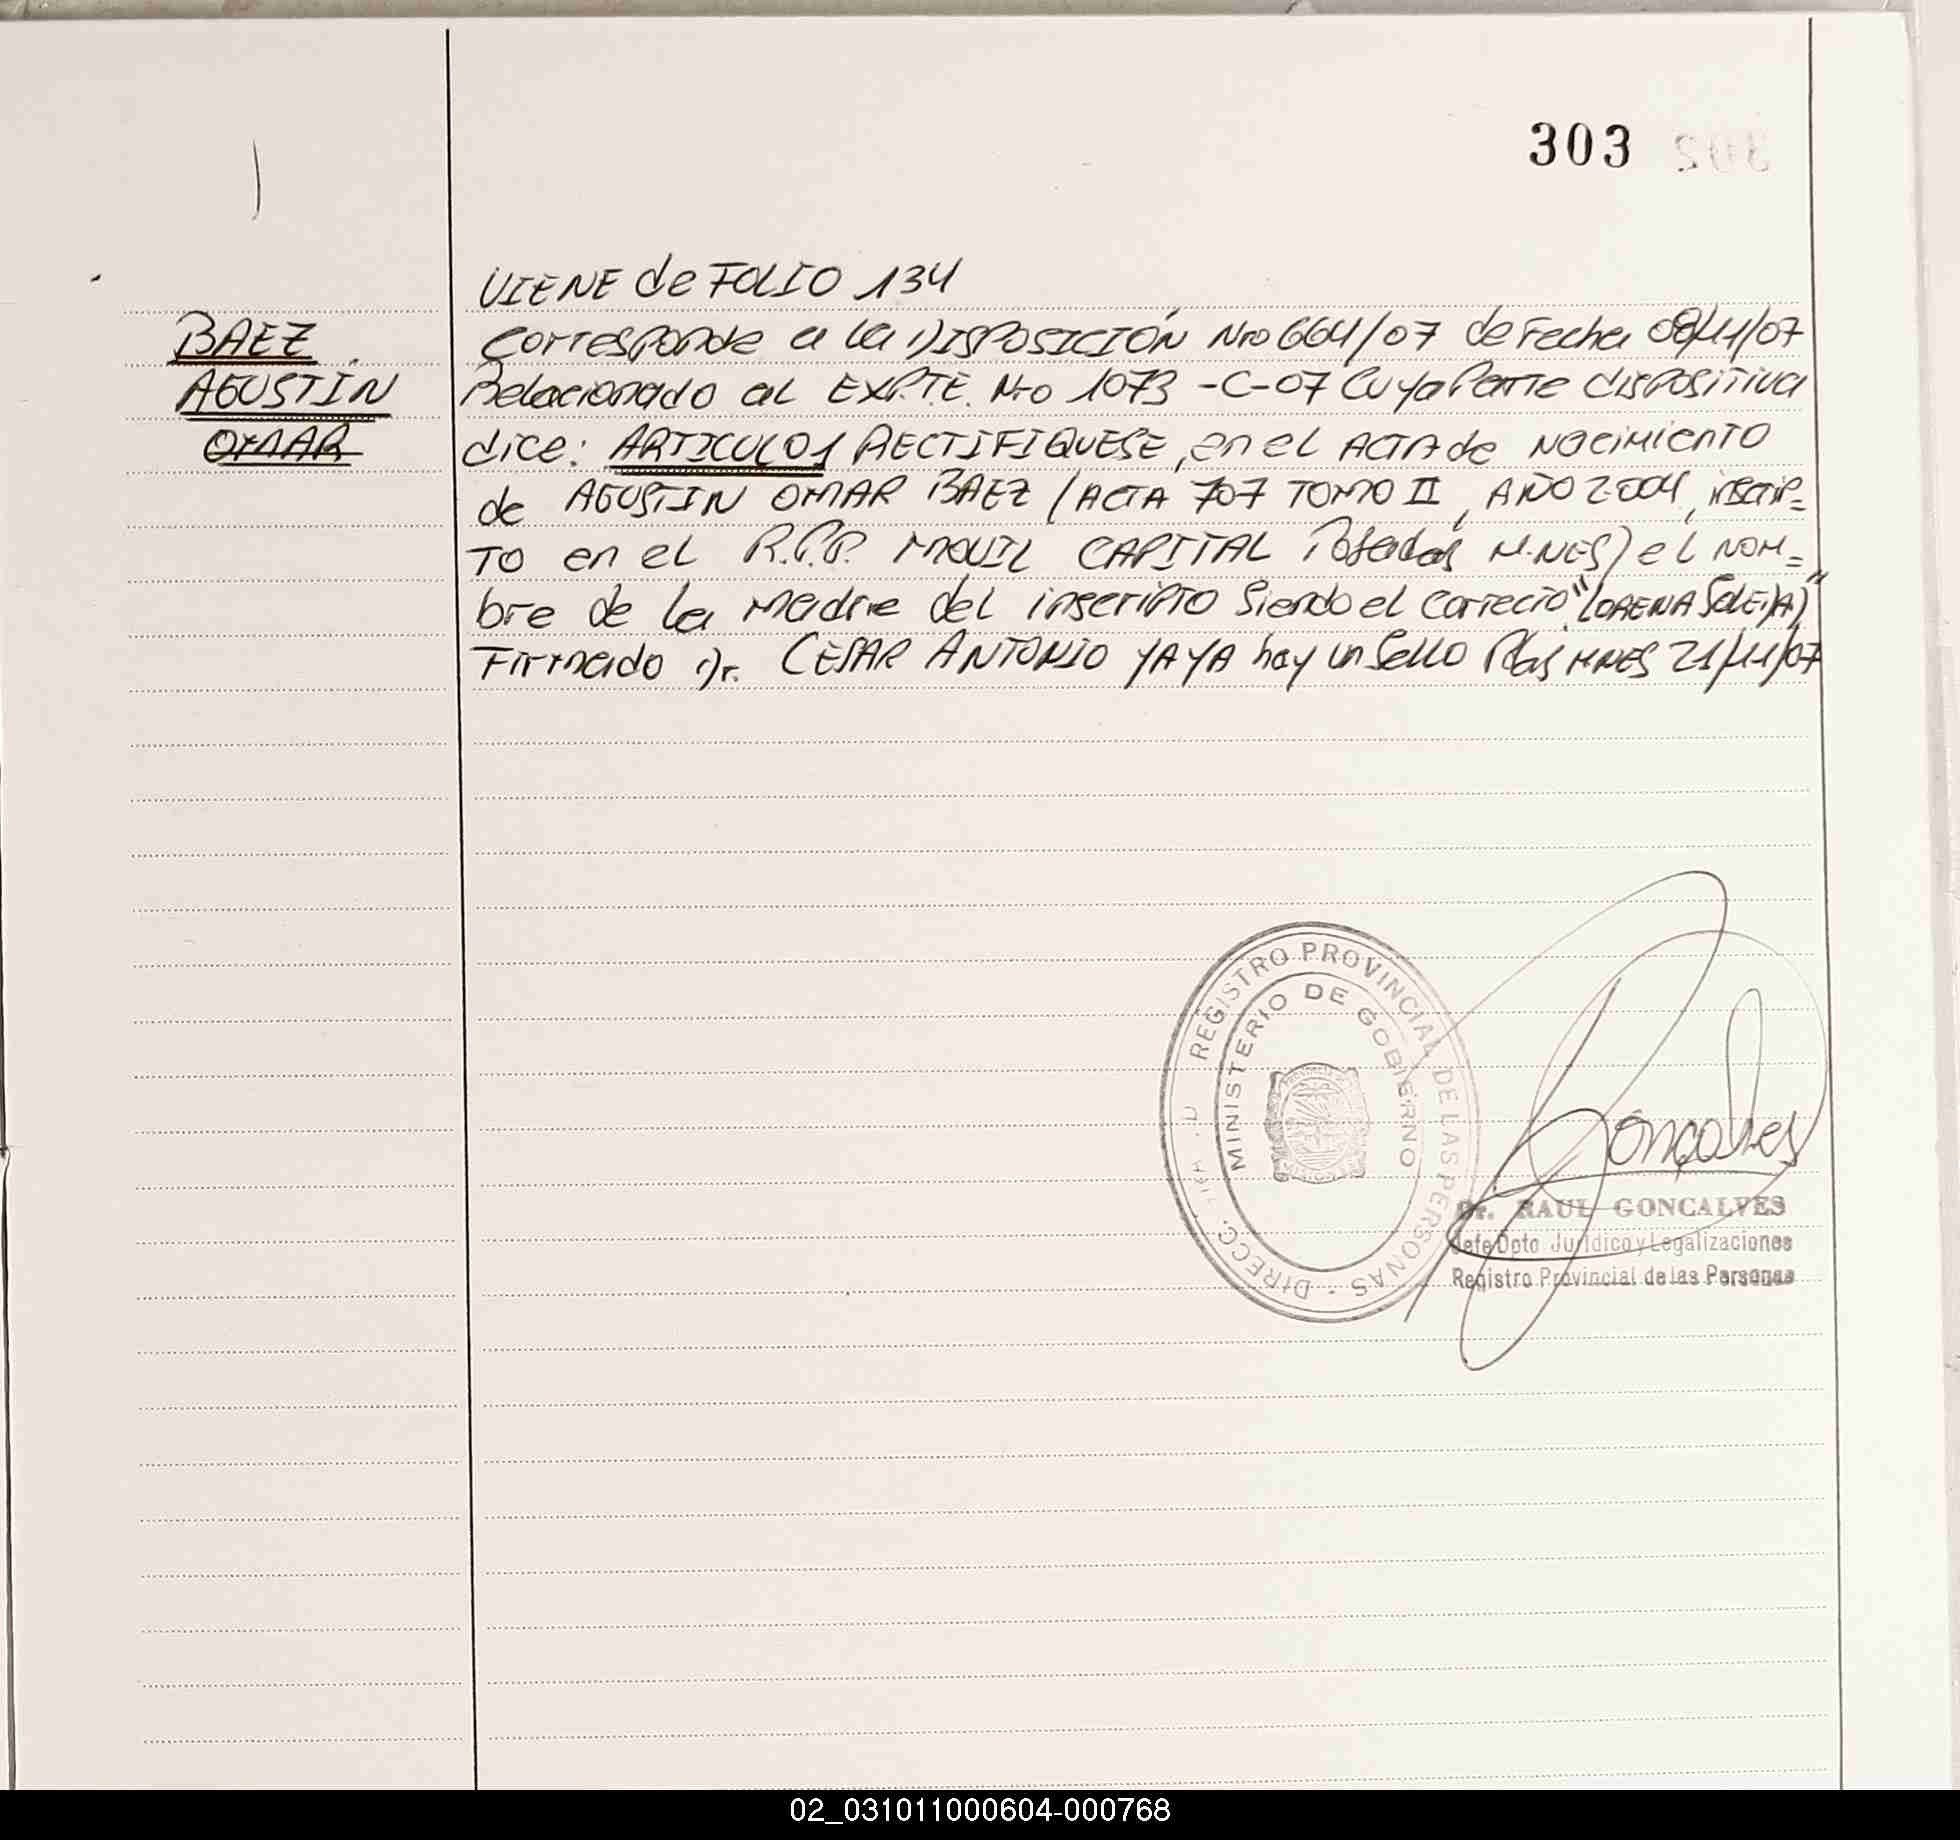 303
VIENE de FOLIO 134
BAEZ
AGUSTIN
OMAR
Corresponde a la DISPOSICIÓN Nro 664/07 de Fecha 08/11/07
Relacionado al EXPTE. Nro 1073 -C-07 Cuya Parte dispositiva
dice: ARTICULO 1 RECTIFIQUESE, en el ACTA de Nacimiento
de AGUSTIN OMAR BAEZ (ACTA 707 TOMO II, AÑO 2.004, inscrip=
TO en el R.P.P. MOVIL CAPITAL Posadas M.NES) el NOM=
bre de la Madre del inscripto Siendo el Correcto "(LORENA SOLEDA)"
Firmado Dr. CESAR ANTONIO YAYA hay un Sello Pdas MNES 21/11/07
REGISTRO PROVINCIAL DE LAS PERSONAS
MINISTERIO DE GOBIERNO
Gonçalves
Dr. RAUL GONCALVES
Jefe Dpto Jurídico y Legalizaciones
Registro Provincial de las Personas
02_031011000604-000768